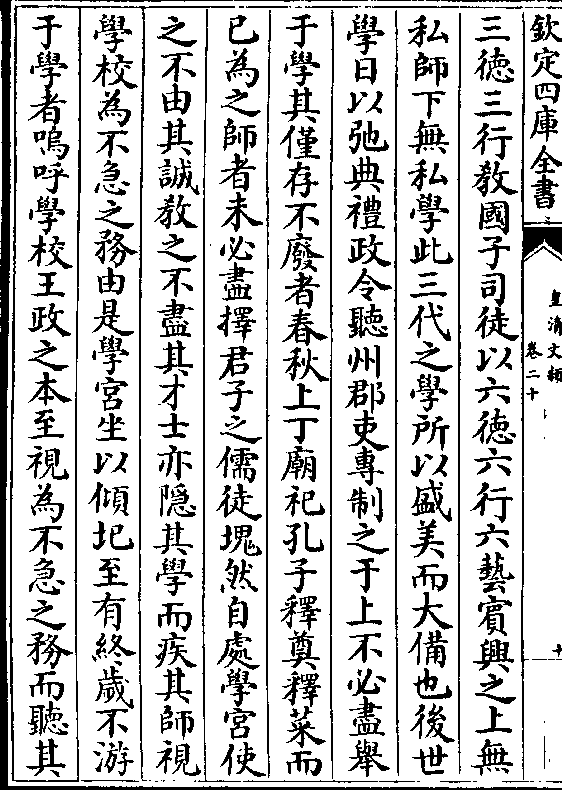 欽定四庫全書
皇清文穎
卷二十
三徳三行教國子司徒以六徳六行六藝賓興之上無
私師下無私學此三代之學所以盛美而大備也後世
學日以弛典禮政令聽州郡吏專制之于上不必盡舉
于學其僅存不廢者春秋上丁廟祀孔子釋奠釋菜而
已為之師者未必盡擇君子之儒徒塊然自處學宮使
之不由其誠教之不盡其才士亦隠其學而疾其師視
學校為不急之務由是學宮坐以傾圮至有終歲不游
于學者嗚呼學校王政之本至視為不急之務而聽其